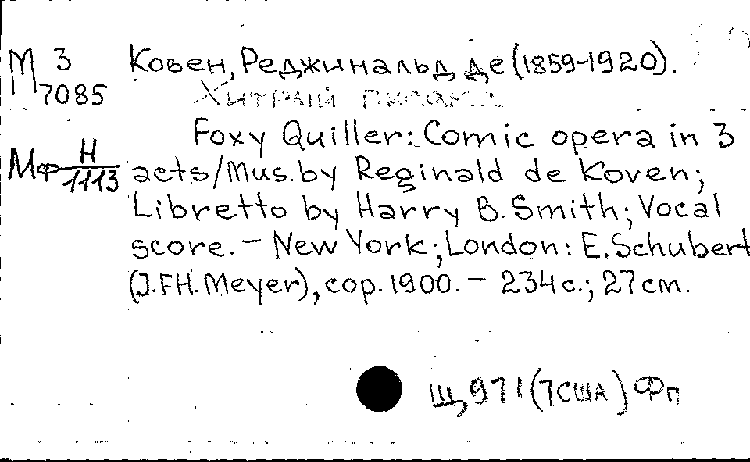 М 3
7085
Ковен, Реджинальд де (1859-1920).
Хитрый
Foxy Quiller: Comic opera in 3
Мф Н
1113
acts/Mus. by Reginald de Koven;
Libretto by Harry B. Smith; Vocal
score. – New York; London: E. Schubert
(J.FH. Meyer), cop. 1900. – 234 с.; 27 cm.
Щ971(7США)Фп